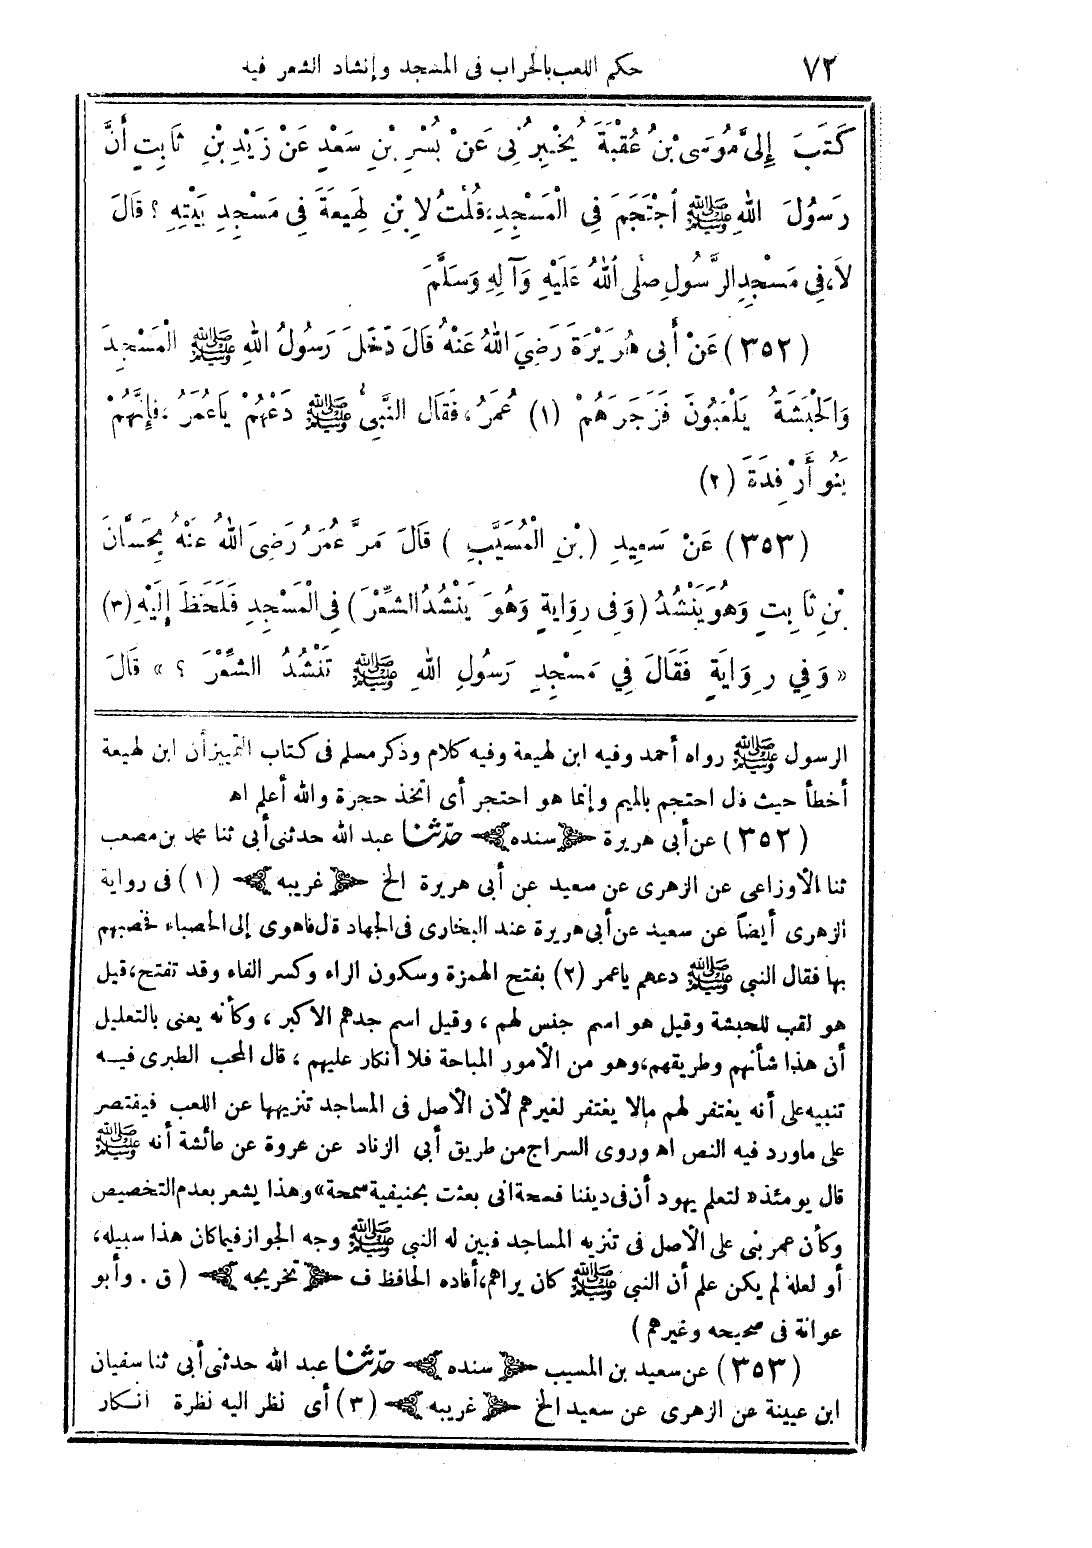 ٧٢ حكم اللعب بالحراب فى المسجد وإنشاد الشعر فيه
كَتَبَ إِلَىَّ مُوسَى بْنُ عُقْبَةَ يُخْبِرُنِى عَنْ بُسْرِ بْنِ سَعْدٍ عَنْ زَيْدِ بْنِ ثَابِتٍ أَنَّ
رَسُولَ اللهِ ﷺ اُحْتَجَمَ فِى الْمَسْجِدِ، قُلْتُ لِابْنِ لَهِيعَةَ فِى مَسْجِدِ بَيْتِهِ ؟ قَالَ
لَا، فِى مَسْجِدِ الرَّسُولِ صلى اللهُ عَلَيْهِ وَآلِهِ وَسَلَّمَ
(٣٥٢) عَنْ أَبِى هُرَيْرَةَ رَضِيَ اللهُ عَنْهُ قَالَ دَخَلَ رَسُولُ اللهِ ﷺ الْمَسْجِدَ
وَالْحَبَشَةُ يَلْعَبُونَ فَزَجَرَهُمْ (١) عُمَرُ، فَقَال النَّبِىُّ ﷺ دَعْهُمْ يَاعُمَرُ، فَإِنَّهُمْ
بَنُو أَرْفِدَةَ (٢)
(٣٥٣) عَنْ سَعِيدِ (بْنِ الْمُسَيَّبِ) قَالَ مَرَّ عُمَرُ رَضِىَ اللهُ عَنْهُ بِحَسَّانَ
بْنِ ثَابِتٍ وَهُوَ يَنْشُدُ (وَفِى رِوَايَةٍ وَهُوَ يَنْشُدُ الشِّعْرَ) فِى الْمَسْجِدِ فَلَحَظَ إِلَيْهِ (٣)
«وَفِي رِوَايَةٍ فَقَالَ فِي مَسْجِدِ رَسُولِ اللهِ ﷺ تَنْشُدُ الشِّعْرَ ؟» قَالَ
الرسول ﷺ رواه أحمد وفيه ابن لهيعة وفيه كلام وذكر مسلم فى كتاب التمييز أن ابن لهيعة
أخطأ حيث قال احتجم بالميم وإنما هو احتجر أى اتخذ حجرة والله أعلم اه
(٣٥٢) عن أبى هريرة ﴿سنده﴾ حدّثنا عبد الله حدثنى أبى ثنا محمد بن مصعب
ثنا الأوزاعى عن الزهرى عن سعيد عن أبى هريرة الخ ﴿غريبه﴾ (١) فى رواية
الزهرى أيضاً عن سعيد عن أبى هريرة عند البخارى فى الجهاد قال فاهوى إلى الحصباء فحصبهم
بها فقال النبى ﷺ دعهم ياعمر (٢) بفتح الهمزة وسكون الراء وكسر الفاء وقد تفتح، قيل
هو لقب للحبشة وقيل هو اسم جنس لهم، وقيل اسم جدهم الاكبر، وكأنه يعنى بالتعليل
أن هذا شأنهم وطريقهم، وهو من الأمور المباحة فلا انكار عليهم، قال المحب الطبرى فيه
تنبيه على أنه يغتفر لهم مالا يغتفر لغيرهم لأن الأصل فى المساجد تنزيهها عن اللعب فيقتصر
على ماورد فيه النص اه وروى السراج من طريق أبى الزناد عن عروة عن عائشة أنه ﷺ
قال يومئذ «لتعلم يهود أن فى ديننا فسحة انى بعثت بحنيفية سمحة» وهذا يشعر بعدم التخصيص
وكأن عمر بنى على الأصل فى تنزيه المساجد فبين له النبى ﷺ وجه الجواز فيما كان هذا سبيله،
أو لعله لم يكن علم أن النبى ﷺ كان يراهم، أفاده الحافظ ف ﴿تخريجه﴾ (ق. وأبو
عوانة فى صحيحه وغيرهم)
(٣٥٣) عن سعيد بن المسيب ﴿سنده﴾ حدّثنا عبد الله حدثنى أبى ثنا سفيان
ابن عيينة عن الزهرى عن سعيد الخ ﴿غريبه﴾ (٣) أى نظر اليه نظرة انكار